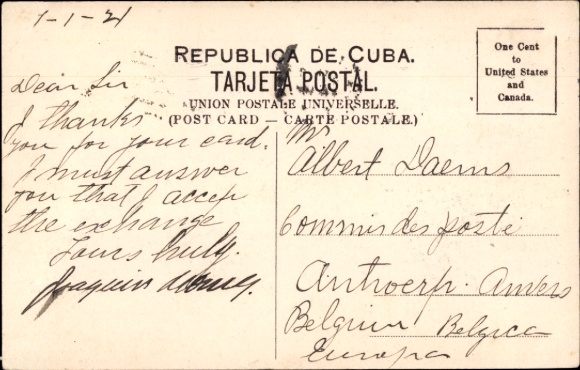 1-1-21
REPUBLICA DE CUBA.
TARJETA POSTAL.
UNION POSTALE UNIVERSELLE.
(POST CARD — CARTE POSTALE.)
One Cent
to
United States
and
Canada.
Dear Sir
I thanks
you for your card.
I must answer
you that I accep
the exchange
Yours truly.
Joaquin
Mr
Albert Daems
Commis des poste
Antwerp. Anvers
Belgium Belgica
Europa